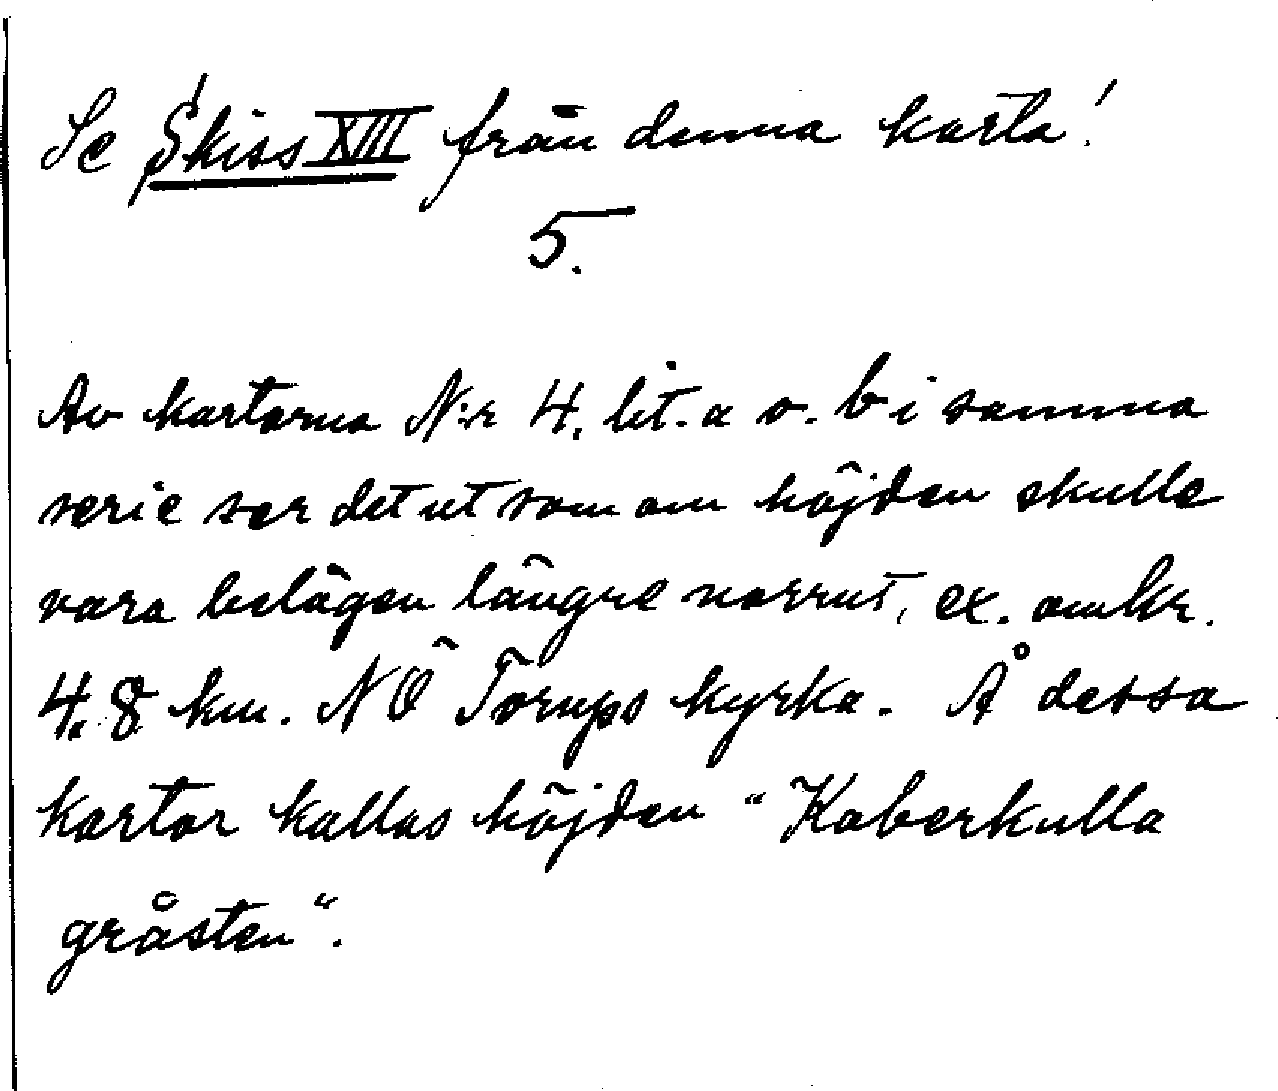 Se Skiss XIII från denna karta!
5.
Av kartorna N:r 4. lit. a o. b i samma
serie ser det ut som om höjden skulle
vara belägen längre norrut, ex. omkr.
4,8 km. NÖ Torups kyrka. Å dessa
kartor kallas höjden "Kaberkulla
gråsten".